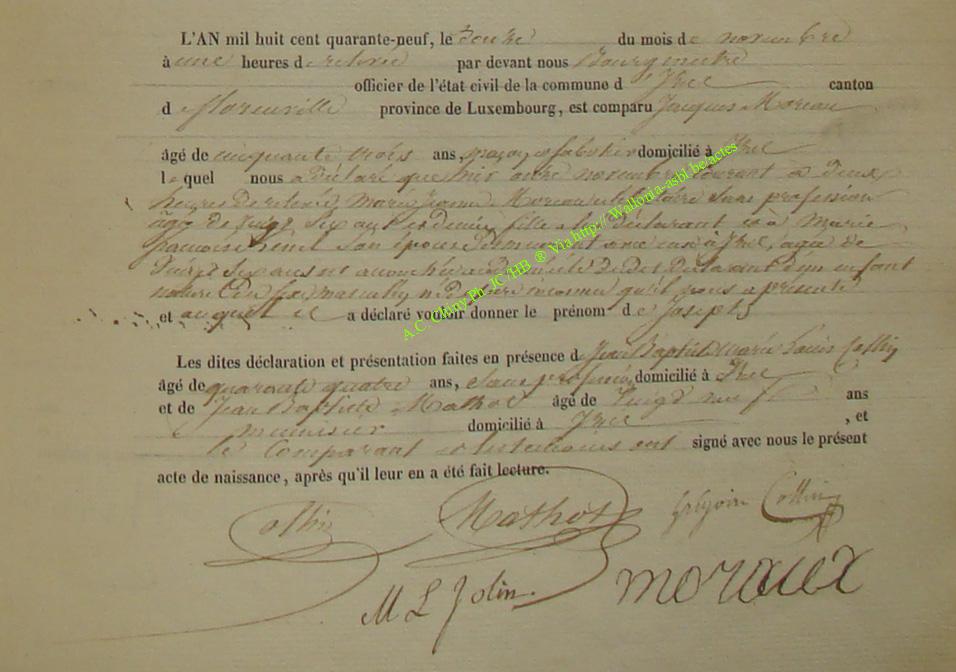 L'AN mil huit cent quarante-neuf, le douze du mois de novembre
à une heures de relevée par devant nous Bourgmestre
officier de l'état civil de la commune d' canton
de florenville province de Luxembourg, est comparu Jacques Moreau
âgé de cinquante trois ans, maçon domicilié à
lequel nous a déclaré que hier onze novembre courant à deux
heures de relevée, Marie Moreau célibataire sans profession
âgée de vingt six ans et demie, fille du déclarant et à Marie
françoise son épouse agée de
six ans est accouchée au domicile dudit déclarant d'un enfant
naturel du sexe masculin, né de père inconnu qu'il nous a présenté
et auquel il a déclaré vouloir donner le prénom de Joseph
Les dites déclaration et présentation faites en présence de Jean Baptiste Marie Louis Collin
âgé de quarante quatre ans, sans profession, domicilié à
et de Jean Baptiste Mathot âgé de vingt neuf ans
menuisier domicilié à , et
le comparant et les témoins ont signé avec nous le présent
acte de naissance, après qu'il leur en a été fait lecture.
Collin Mathot Grégoire Collin
M L Jolin moraux
A.C. Chiny Ph JC /HB ® Via http:// Wallonia-asbl.be/actes